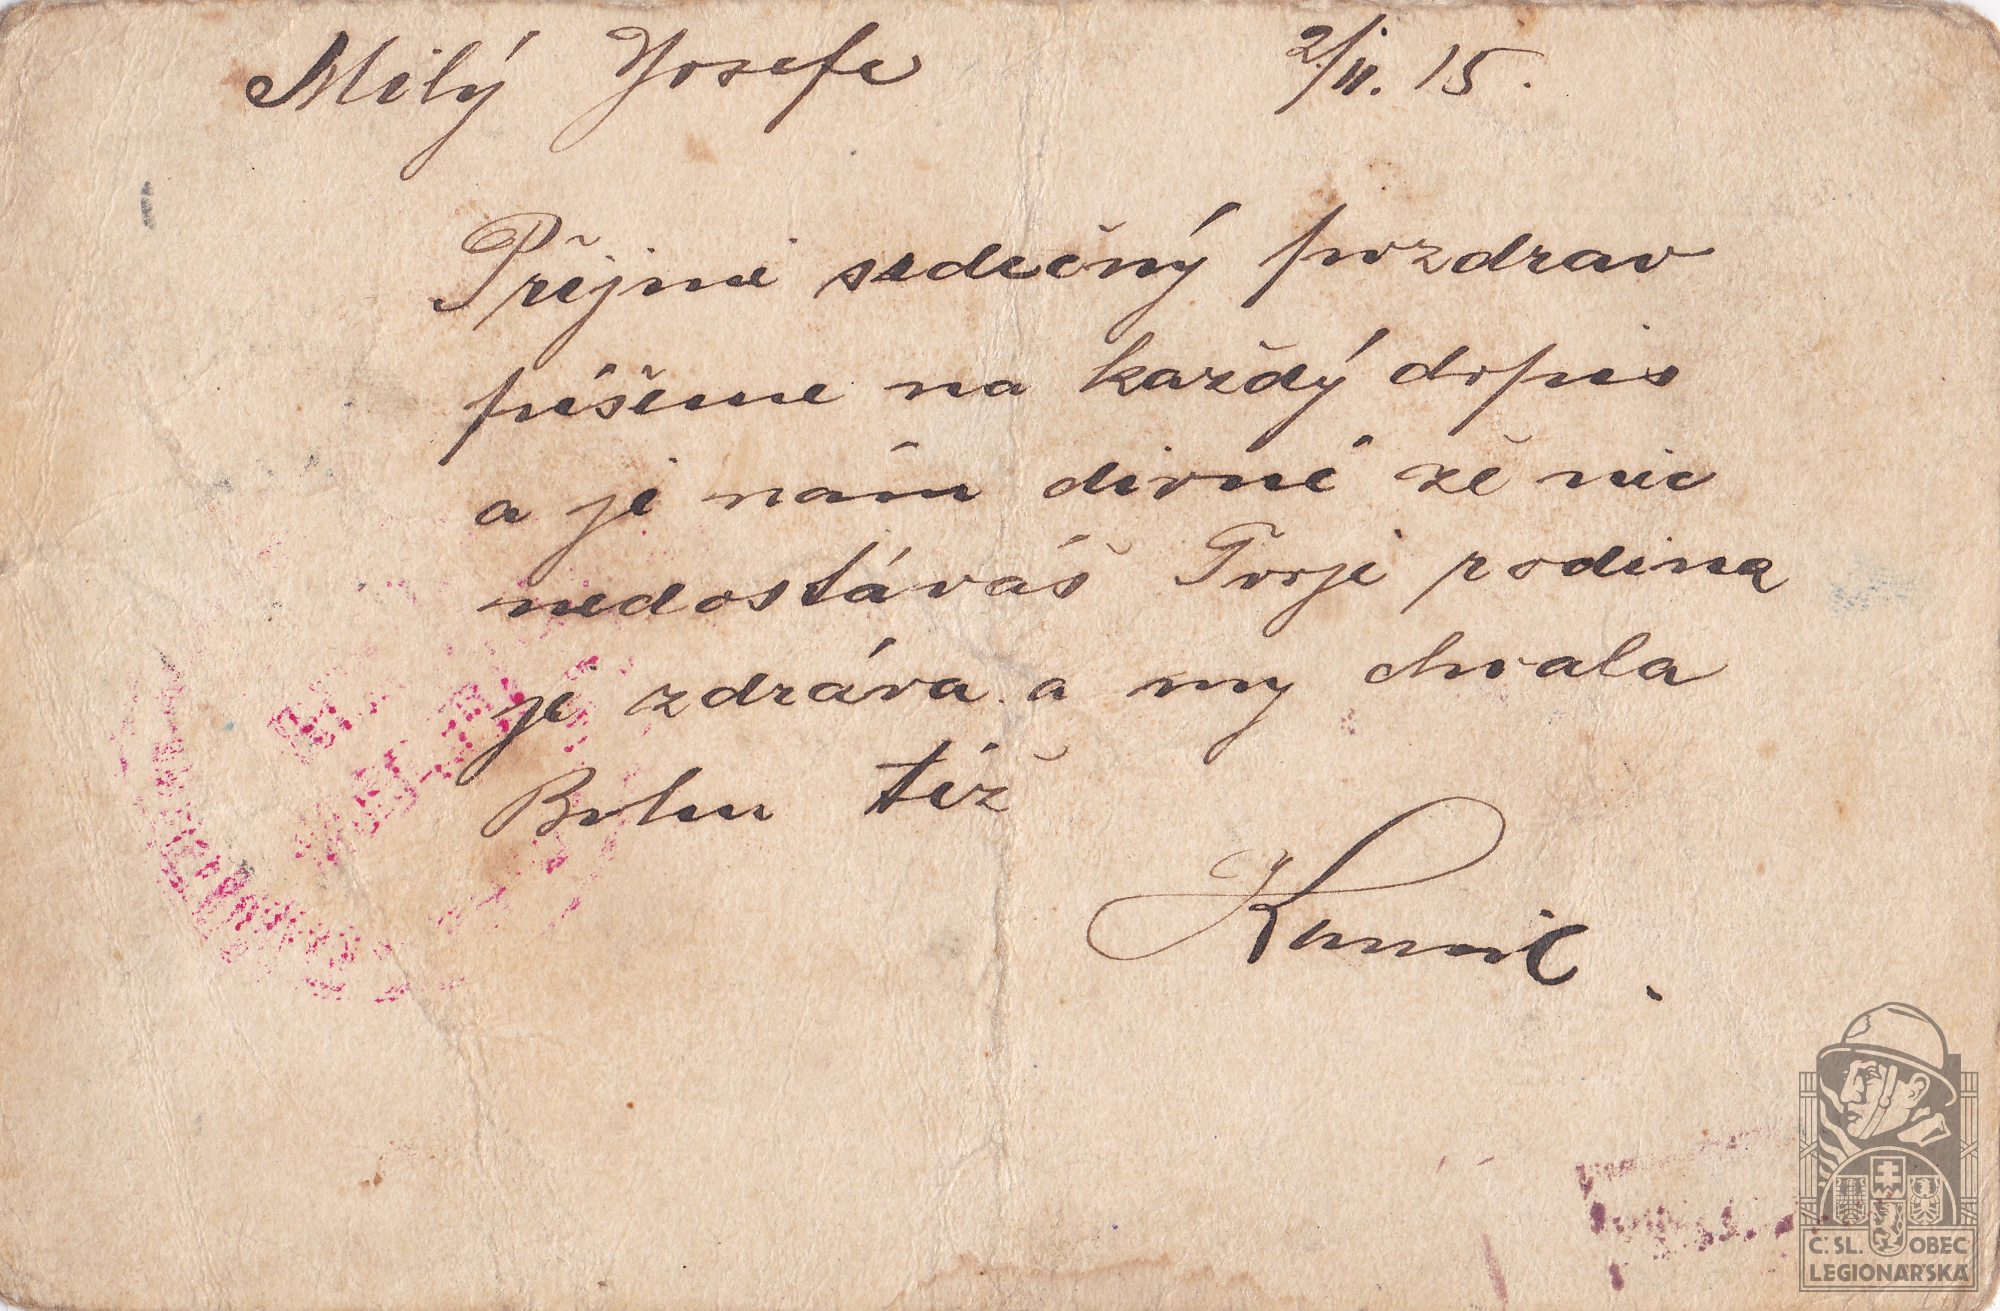 Milý Josefe 2/II. 15.
Přijmi srdečný pozdrav
píšeme na každý dopis
a je nám divné že nic
nedostáváš Tvoje rodina
je zdráva a my chvala
Bohu též
Č. SL. OBEC
LEGIONÁŘSKÁ